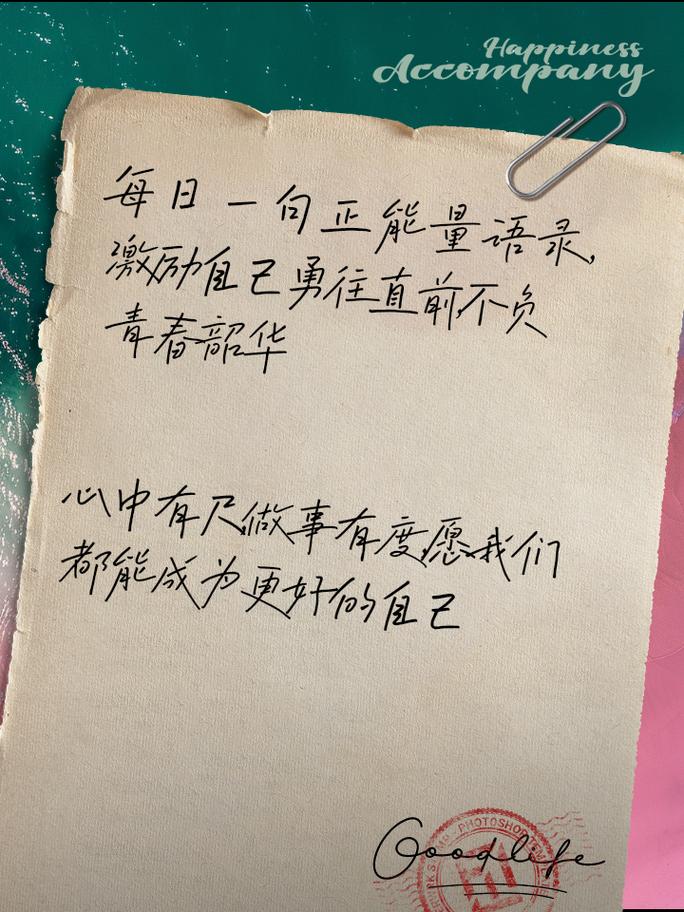 Happiness
Accompany
每日一句正能量语录,
激励自己勇往直前,不负
青春韶华
心中有尺,做事有度,愿我们
都能成为更好的自己
PHOTOSHOP
Goodlife